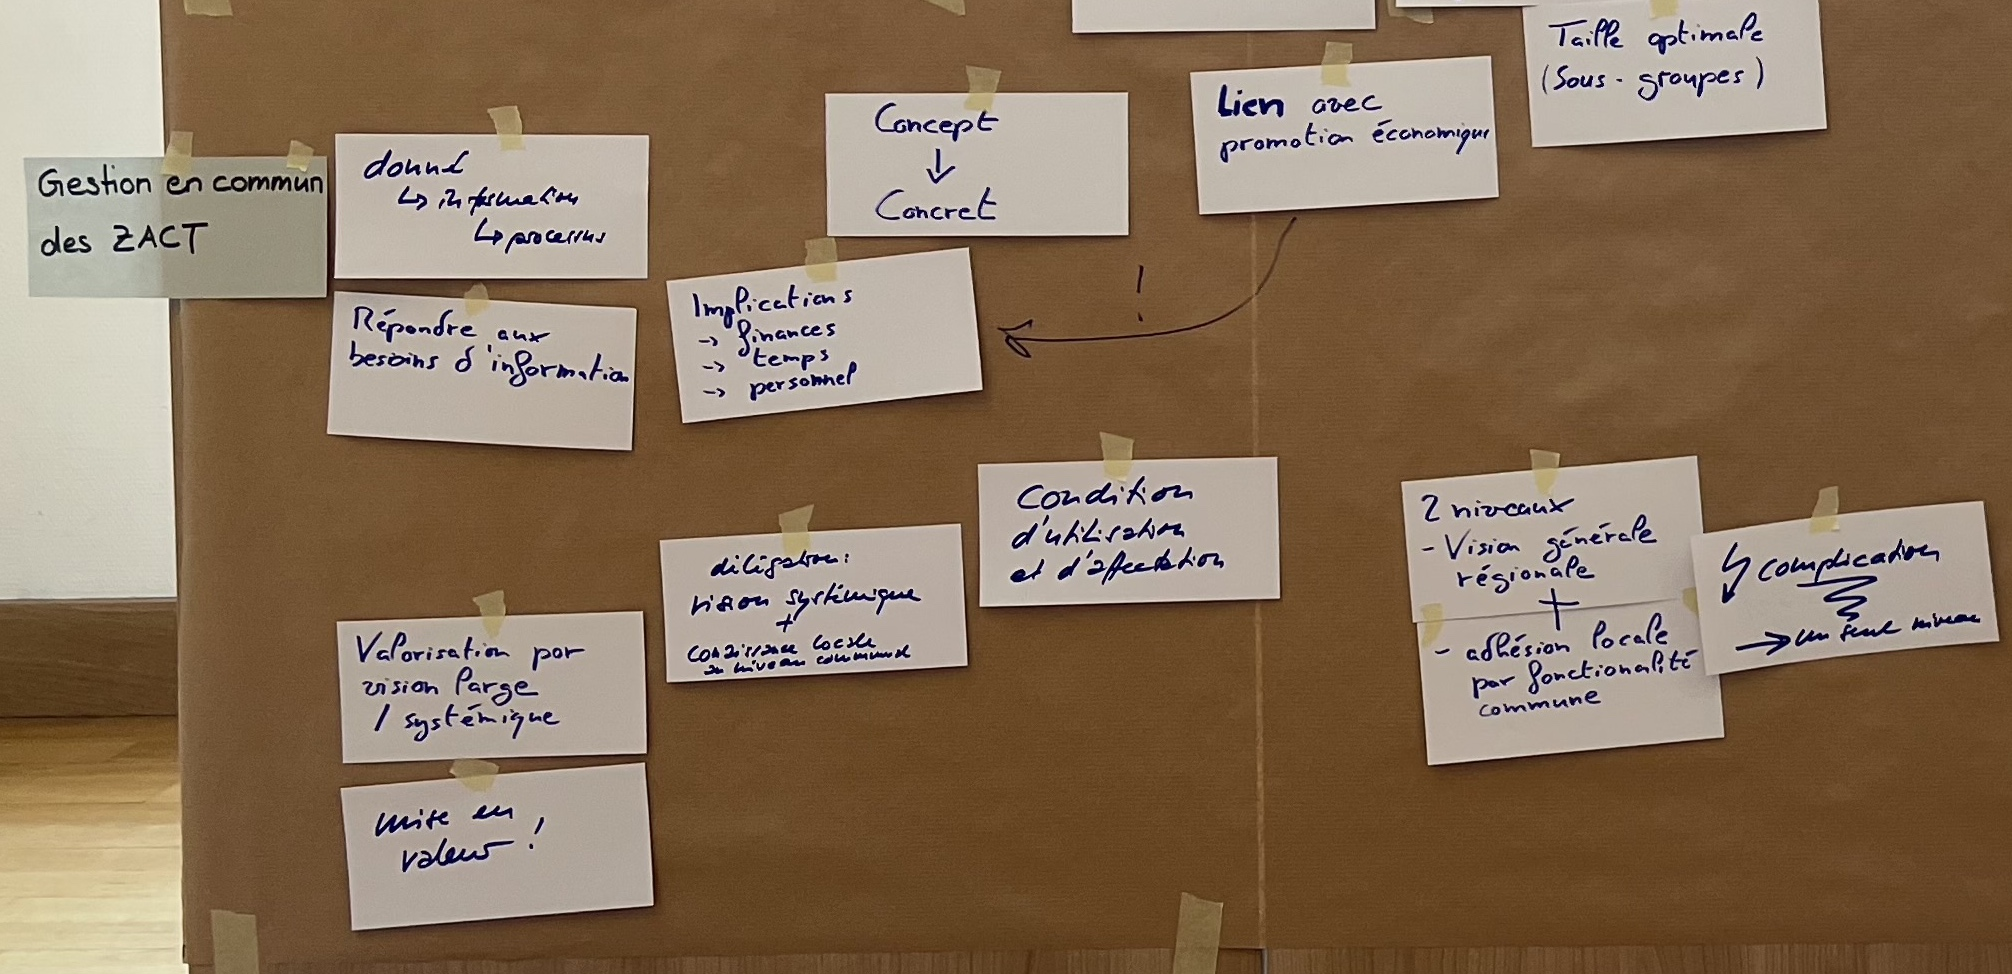 Gestion en commun
des ZACT
donné
↳ information
↳ processus
Répondre aux
besoins d'information
Concept
↓
Concret
Implications
→ finances
→ temps
→ personnel
!
Lien avec
promotion économique
Taille optimale
(Sous-groupes)
Valorisation par
vision large
/ systémique
mise en
valeur !
vision systémique
+
locale
au niveau communal
Condition
d'utilisation
et d'affectation
2 niveaux
- Vision générale
régionale
+
- adhésion locale
par fonctionalité
commune
complication
→ un seul niveau